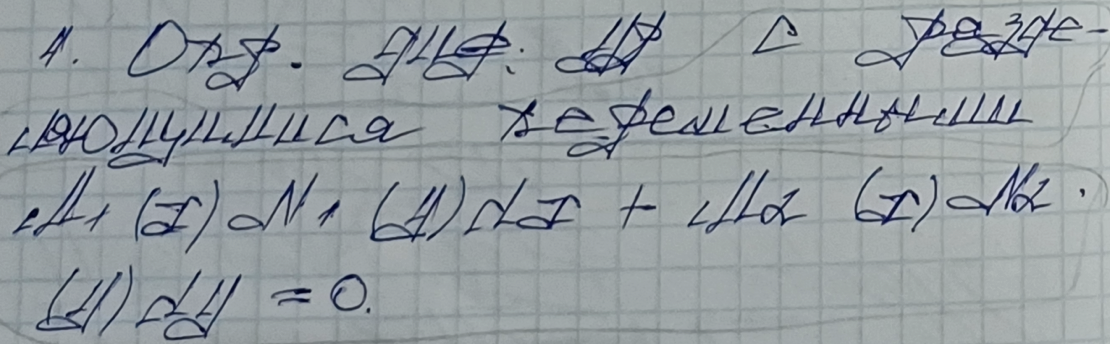 1. Опр. диф. ур с разде-
ляющимися переменными
M1 (x) N1 (y) dx + M2 (x) N2 ·
(y) dy = 0.